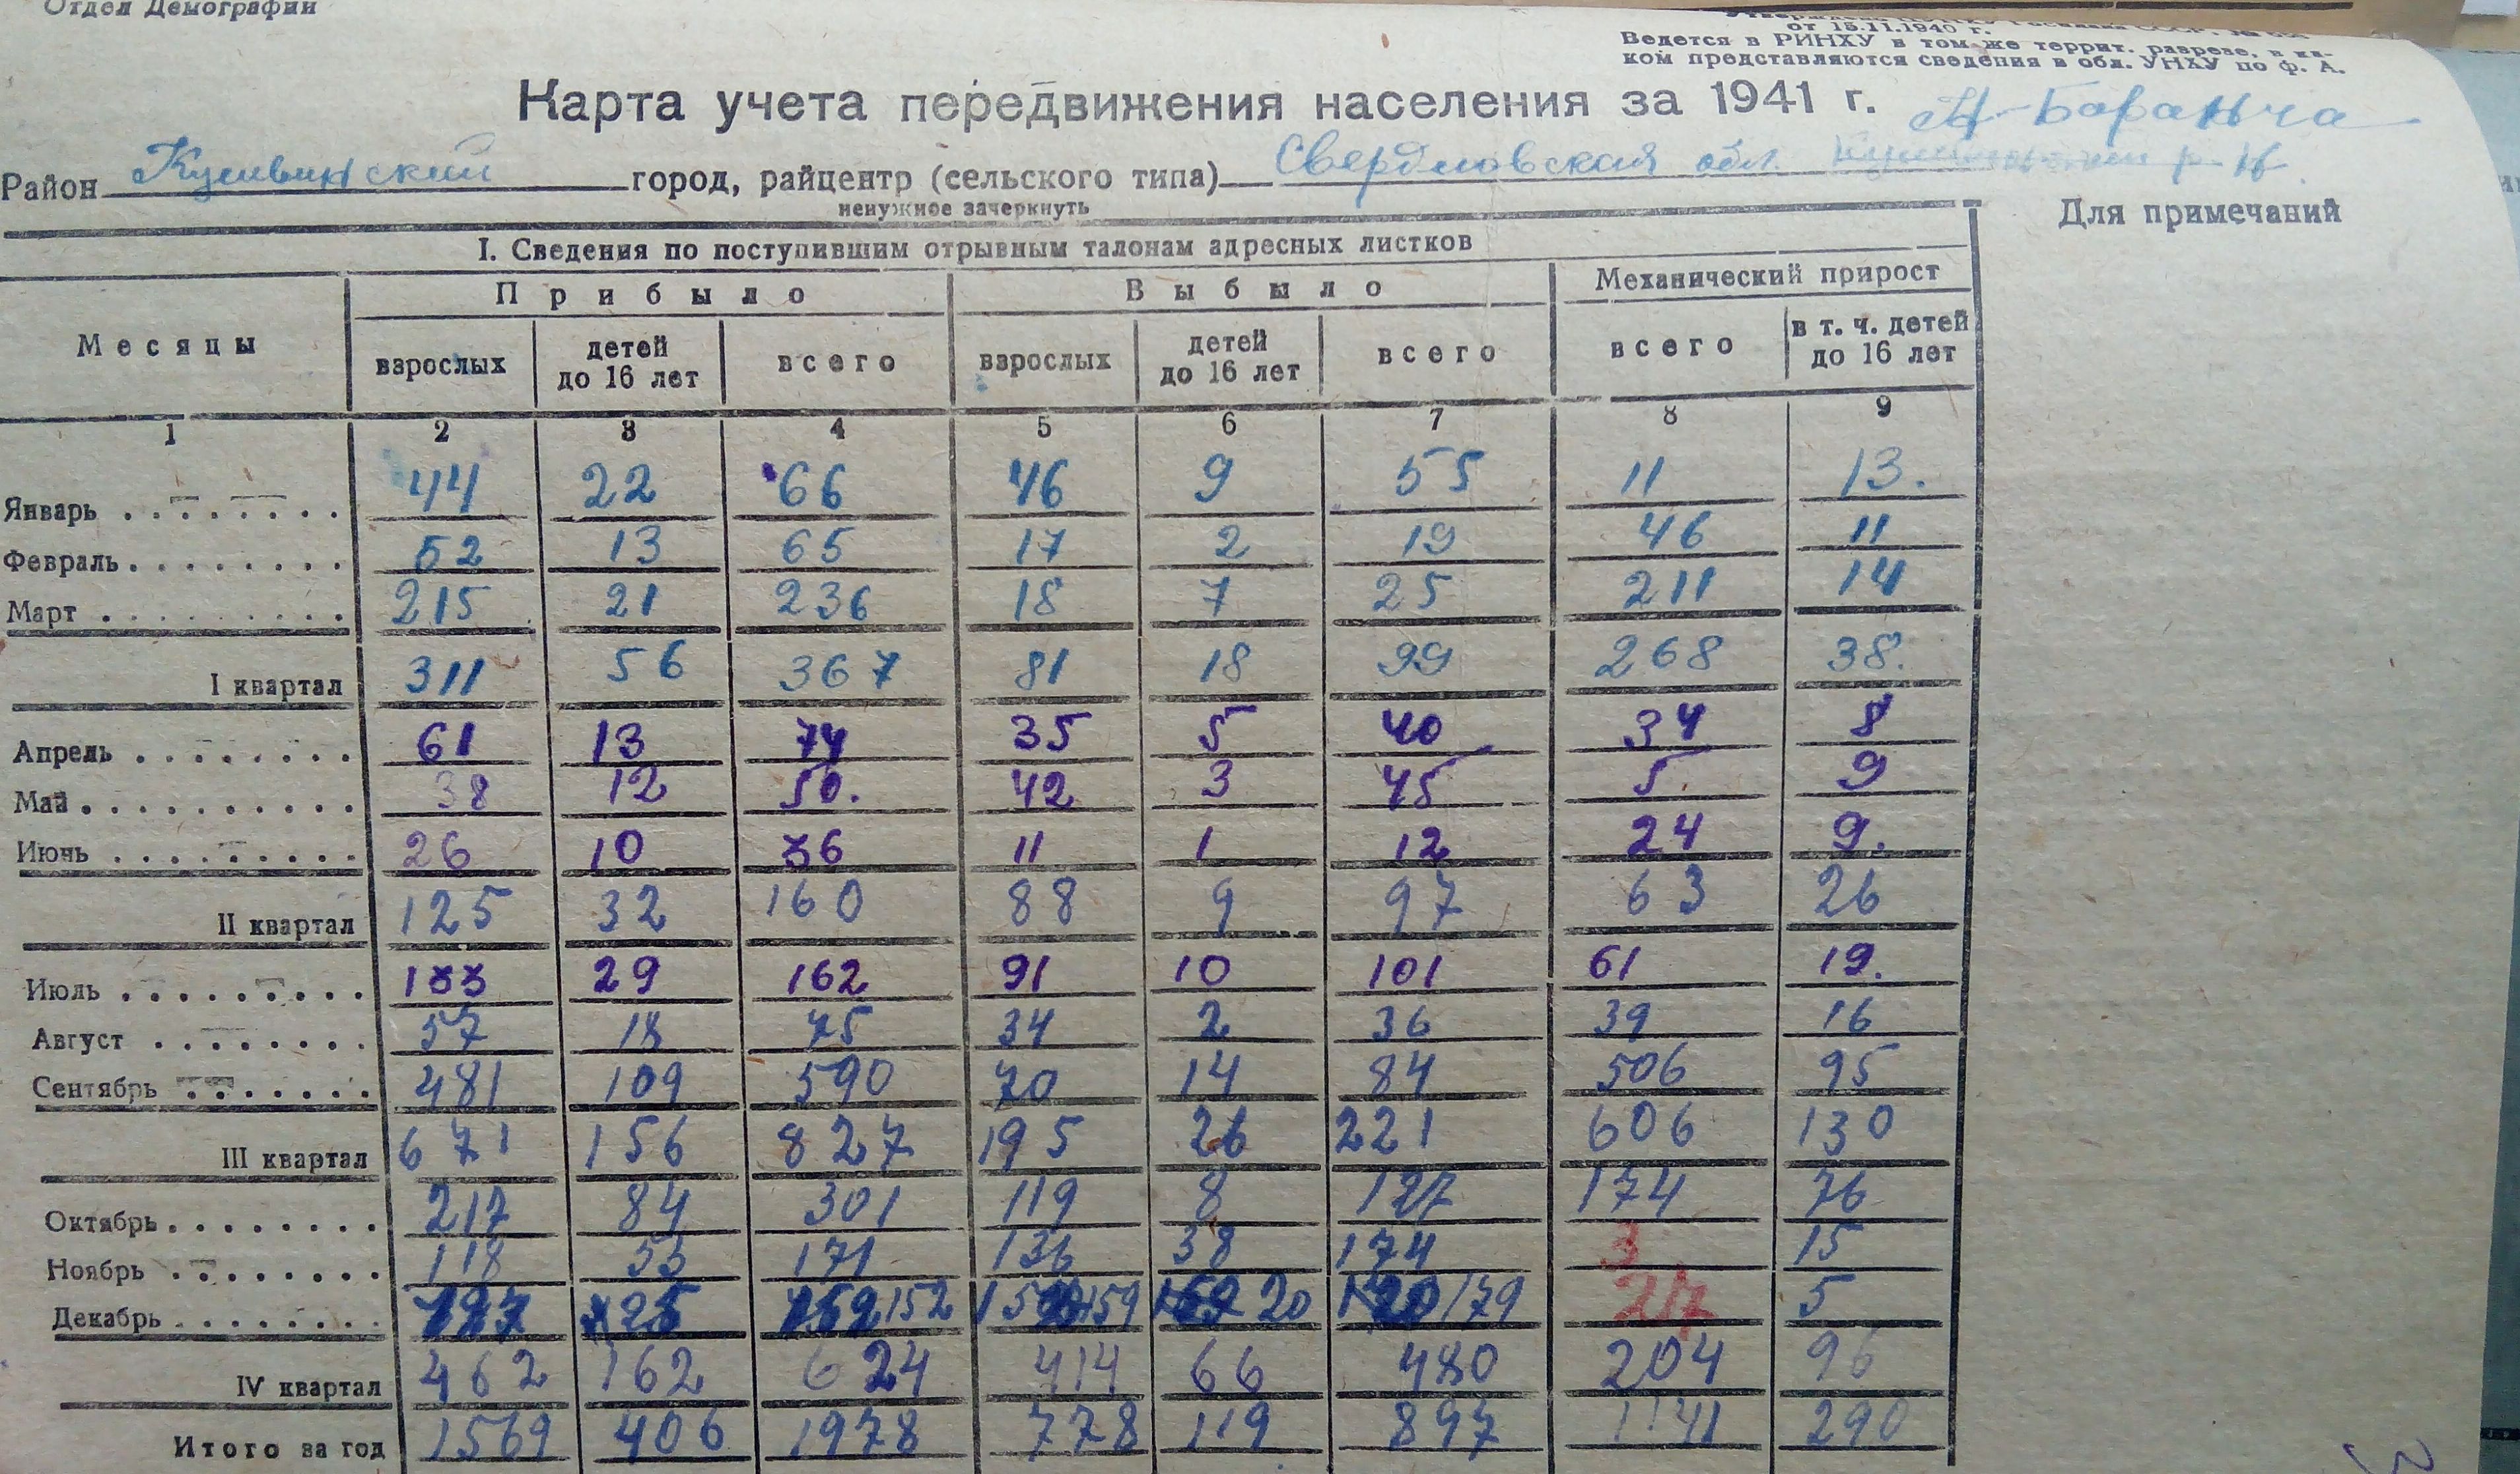 Отдел Демографии
от 15.11.1940 г.
Ведется в РИНХУ в том же террит. разрезе, в ка-
ком представляются сведения в обл. УНХУ по ф. А.
Карта учета передвижения населения за 1941 г. Н-Баранча
Район Кушвинский город, райцентр (сельского типа) Свердловская обл.
ненужное зачеркнуть
Для примечаний
I. Сведения по поступившим отрывным талонам адресных листков
Месяцы Прибыло Выбыло Механический прирост
взрослых детей до 16 лет всего взрослых детей до 16 лет всего всего в т. ч. детей до 16 лет
1 2 3 4 5 6 7 8 9
Январь 44 22 66 46 9 55 11 13.
Февраль 52 13 65 17 2 19 46 11
Март 215 21 236 18 7 25 211 14
I квартал 311 56 367 81 18 99 268 38.
Апрель 61 13 74 35 5 40 34 8
Май 38 12 50. 42 3 45 5. 9
Июнь 26 10 36 11 1 12 24 9.
II квартал 125 32 160 88 9 97 63 26
Июль 133 29 162 91 10 101 61 19.
Август 57 18 75 34 2 36 39 16
Сентябрь 481 109 590 70 14 84 506 95
III квартал 671 156 827 195 26 221 606 130
Октябрь 217 84 301 119 8 127 174 76
Ноябрь 118 53 171 136 38 174 3 15
Декабрь 127 25 152 159 20 179 27 5
IV квартал 462 162 624 414 66 480 204 96
Итого за год 1569 406 1978 778 119 897 1141 290